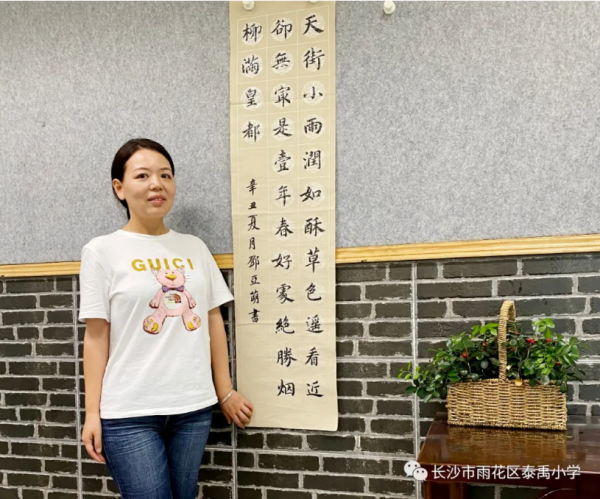 天街小雨潤如酥草色遥看近
卻無冣是壹年春好處絶勝烟
柳滿皇都
辛丑夏月鄧亞萌書
GUICI
长沙市雨花区泰禹小学